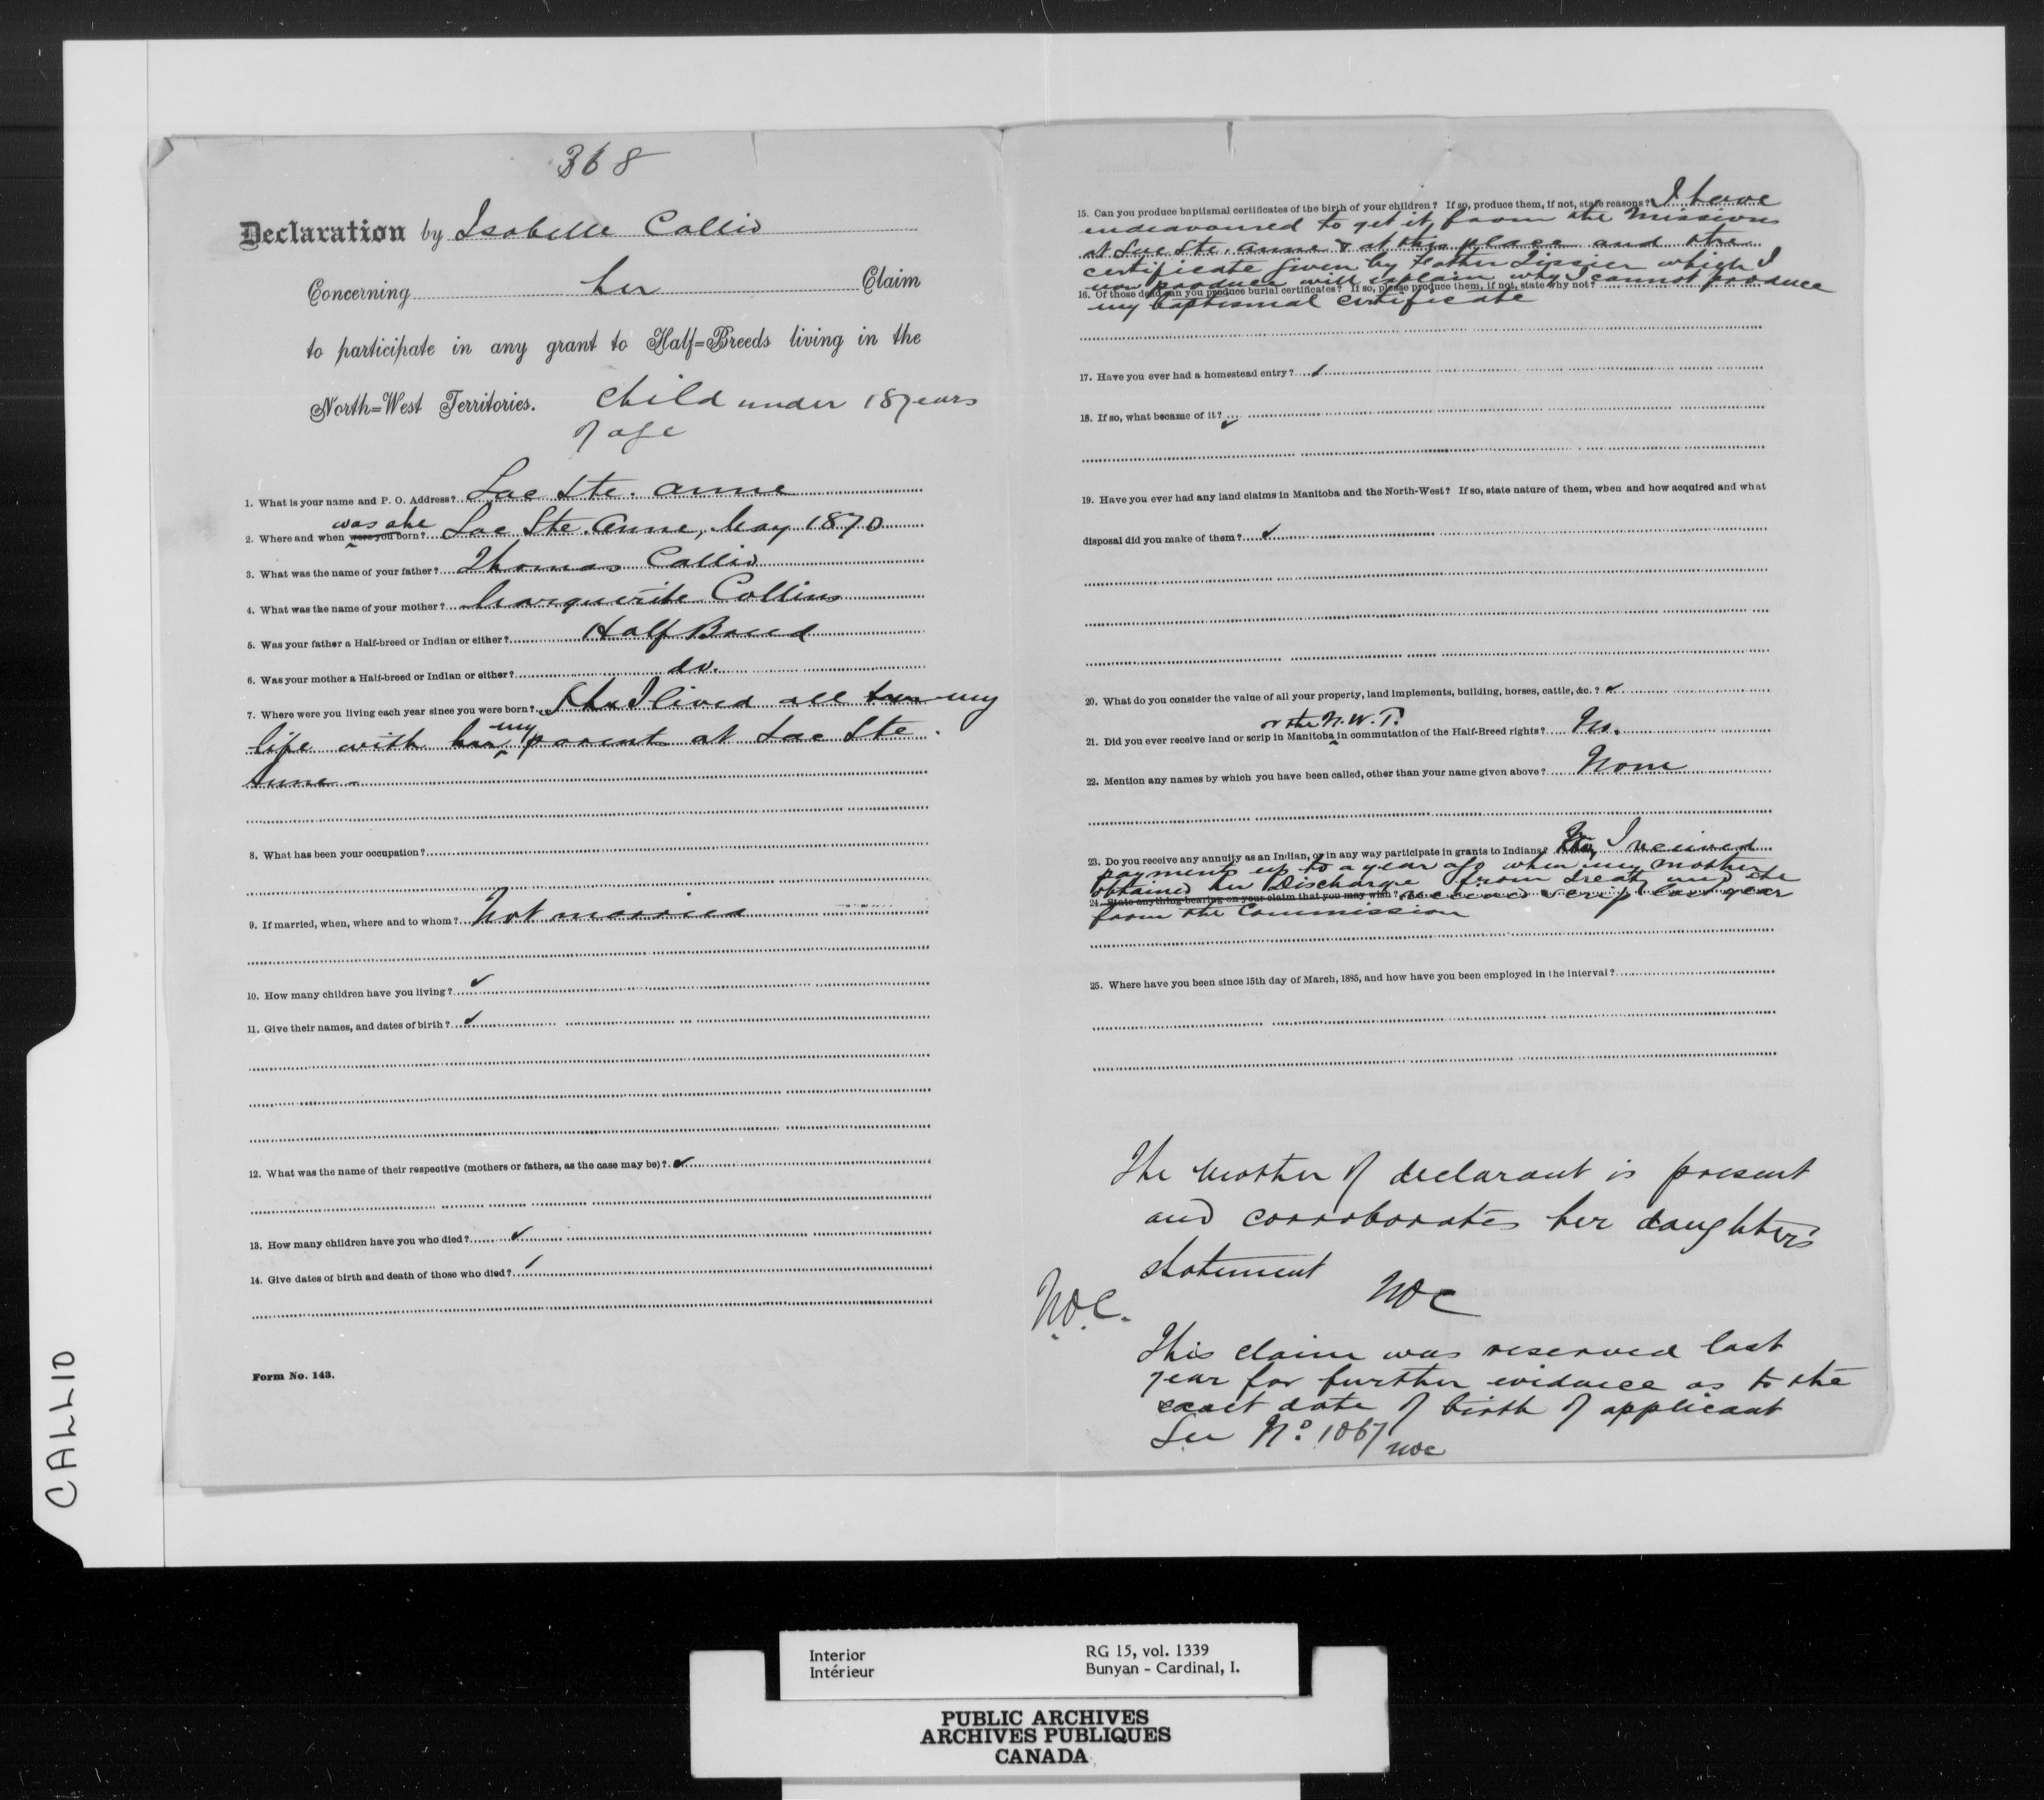 368
Declaration by Isabelle Callio
Concerning her Claim
to participate in any grant to Half=Breeds living in the
North=West Territories. Child under 18 years
of age
1. What is your name and P. O. Address? Lac Ste. Anne
was she
2. Where and when were you born? Lac Ste. Anne, May 1870
3. What was the name of your father? Thomas Callio
4. What was the name of your mother? Marguerite Collins
5. Was your father a Half-breed or Indian or either? Half Breed
6. Was your mother a Half-breed or Indian or either? do.
7. Where were you living each year since you were born? She I lived all her my
life with her my parents at Lac Ste.
Anne-
8. What has been your occupation?
9. If married, when, where and to whom? Not married
10. How many children have you living?
11. Give their names, and dates of birth?
12. What was the name of their respective (mothers or fathers, as the case may be)?
13. How many children have you who died?
14. Give dates of birth and death of those who died?
Form No. 143.
15. Can you produce baptismal certificates of the birth of your children? If so, produce them, if not, state reasons? I have
endeavoured to get it from the missions
at Lac Ste. Anne & at this place and the
certificate given by Father Tissier which I
now produce will explain why I cannot produce
16. Of those dead can you produce burial certificates? If so, please produce them, if not, state why not?
my baptismal certificate
17. Have you ever had a homestead entry?
18. If so, what became of it?
19. Have you ever had any land claims in Manitoba and the North-West? If so, state nature of them, when and how acquired and what
disposal did you make of them?
20. What do you consider the value of all your property, land implements, building, horses, cattle, &c.?
or the N.W.T.
21. Did you ever receive land or scrip in Manitoba in commutation of the Half-Breed rights? No.
22. Mention any names by which you have been called, other than your name given above? None
23. Do you receive any annuity as an Indian, or in any way participate in grants to Indians? I received
payments up to a year ago when my mother
obtained her Discharge from treaty and she
24. State anything bearing on your claim that you may wish? received scrip last year
from the Commission
25. Where have you been since 15th day of March, 1885, and how have you been employed in the interval?
The mother of declarant is present
and corroborates her daughter's
statement NOC
N.O.C.
This claim was reserved last
year for further evidence as to the
exact date of birth of applicant
See No. 1067 NOC
CALLIO
Interior RG 15, vol. 1339
Intérieur Bunyan - Cardinal, I.
PUBLIC ARCHIVES
ARCHIVES PUBLIQUES
CANADA